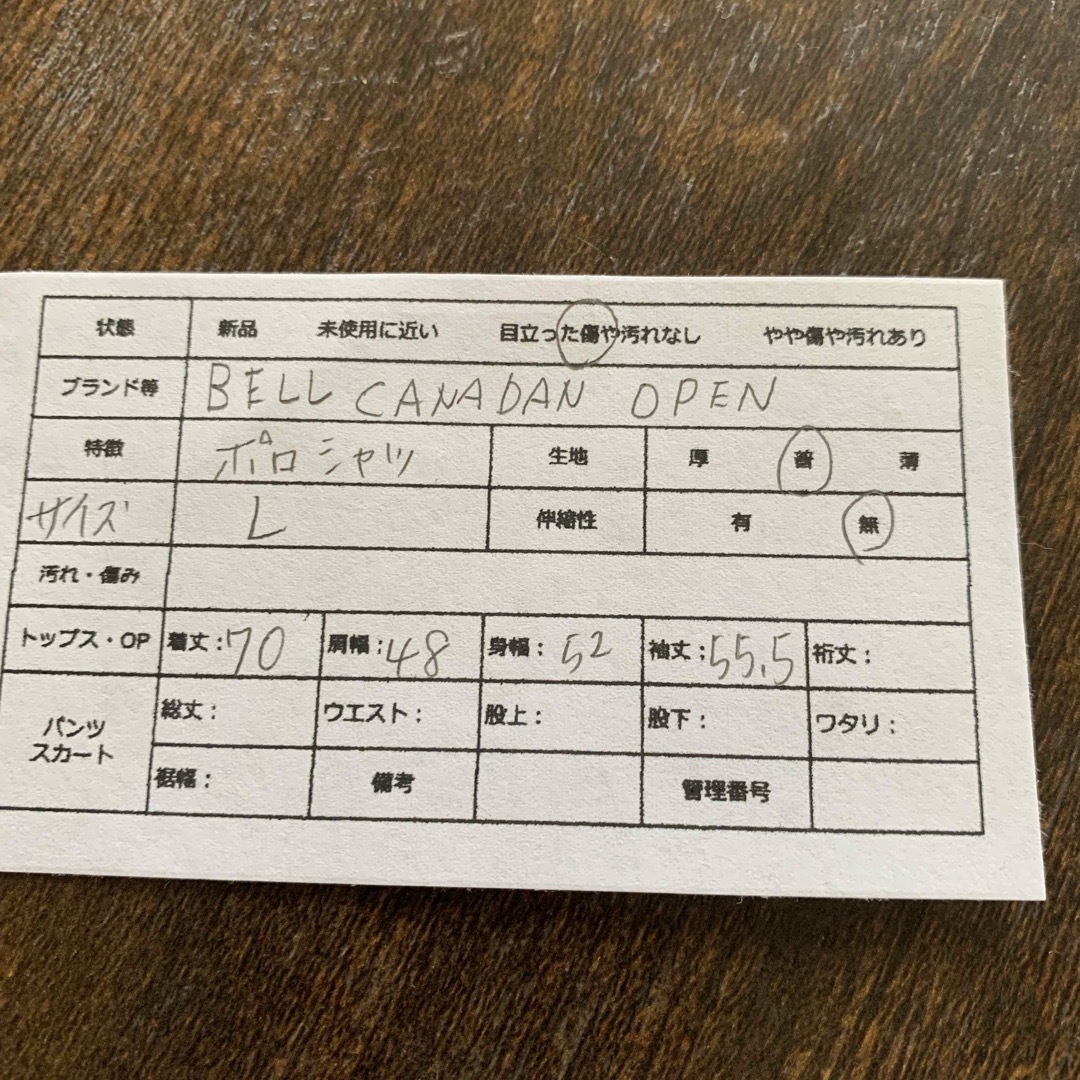 状態 新品 未使用に近い 目立った傷や汚れなし やや傷や汚れあり
ブランド等 BELL CANADAN OPEN
特徴 ポロシャツ 生地 厚 普 薄
サイズ L 伸縮性 有 無
汚れ・傷み
トップス・OP 着丈:70 肩幅:48 身幅:52 袖丈:55.5 裄丈:
パンツ スカート 総丈: ウエスト: 股上: 股下: ワタリ:
裾幅: 備考 管理番号